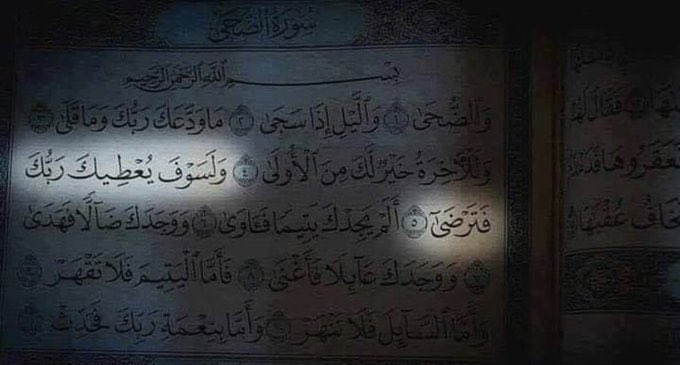 سُورَةُ الضُّحَىٰ
بِسْمِ اللَّهِ الرَّحْمَٰنِ الرَّحِيمِ
وَالضُّحَىٰ ١ وَالَّيْلِ إِذَا سَجَىٰ ٢ مَا وَدَّعَكَ رَبُّكَ وَمَا قَلَىٰ ٣
وَلَلْآخِرَةُ خَيْرٌ لَّكَ مِنَ الْأُولَىٰ ٤ وَلَسَوْفَ يُعْطِيكَ رَبُّكَ
فَتَرْضَىٰ ٥ أَلَمْ يَجِدْكَ يَتِيمًا فَـَٔاوَىٰ ٦ وَوَجَدَكَ ضَآلًّا فَهَدَىٰ
٧ وَوَجَدَكَ عَآئِلًا فَأَغْنَىٰ ٨ فَأَمَّا الْيَتِيمَ فَلَا تَقْهَرْ ٩
وَأَمَّا السَّآئِلَ فَلَا تَنْهَرْ ١٠ وَأَمَّا بِنِعْمَةِ رَبِّكَ فَحَدِّثْ ١١
فَقَالَ
عُقْبَٰهَا